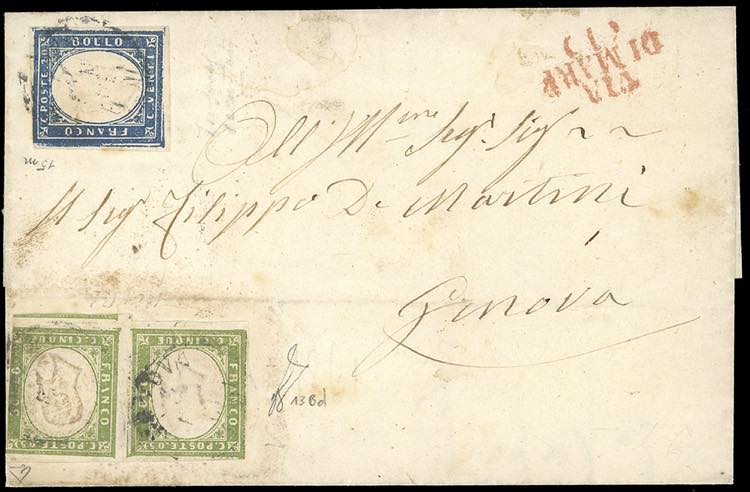 BOLLO
C. POSTE 20
C. VENTI
FRANCO
15 m
VIA
DI MARE
All' Ill.mo Sig.r Sig.r
Il Sig.r Filippo De Martini
Genova
C. CINQUE
FRANCO
C. CINQUE
FRANCO
C. POSTE 05
C. POSTE 05
13Bd